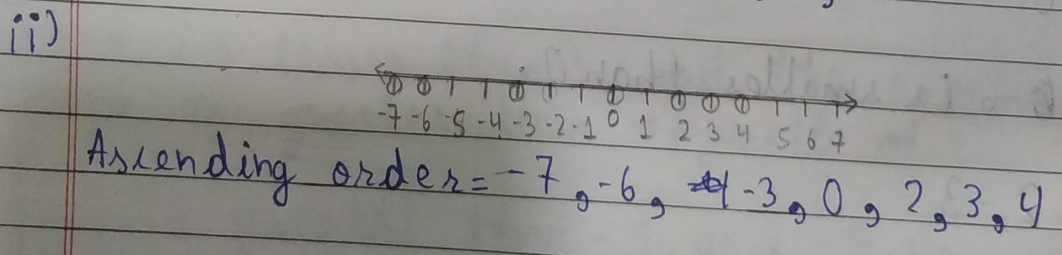 ii)
-7 -6 -5 -4 -3 -2 -1 0 1 2 3 4 5 6 7
Ascending order = -7, -6, -3, 0, 2, 3, 4